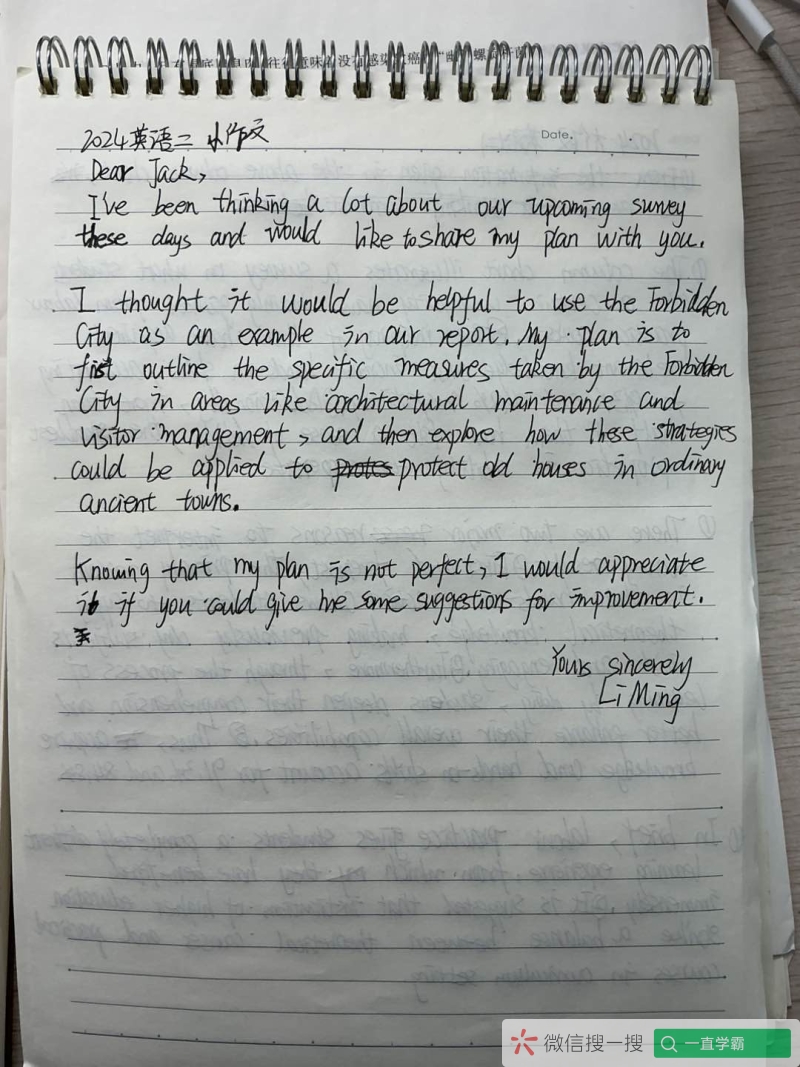 2024英语二 小作文
Date.
Dear Jack,
I've been thinking a lot about our upcoming survey
these days and would like to share my plan with you.
I thought it would be helpful to use the Forbidden
City as an example in our report. My plan is to
first outline the specific measures taken by the Forbidden
City in areas like architectural maintenance and
visitor management, and then explore how these strategies
could be applied to protect old houses in ordinary
ancient towns.
Knowing that my plan is not perfect, I would appreciate
it if you could give me some suggestions for improvement.
Yours sincerely
Li Ming
微信搜一搜
一直学霸